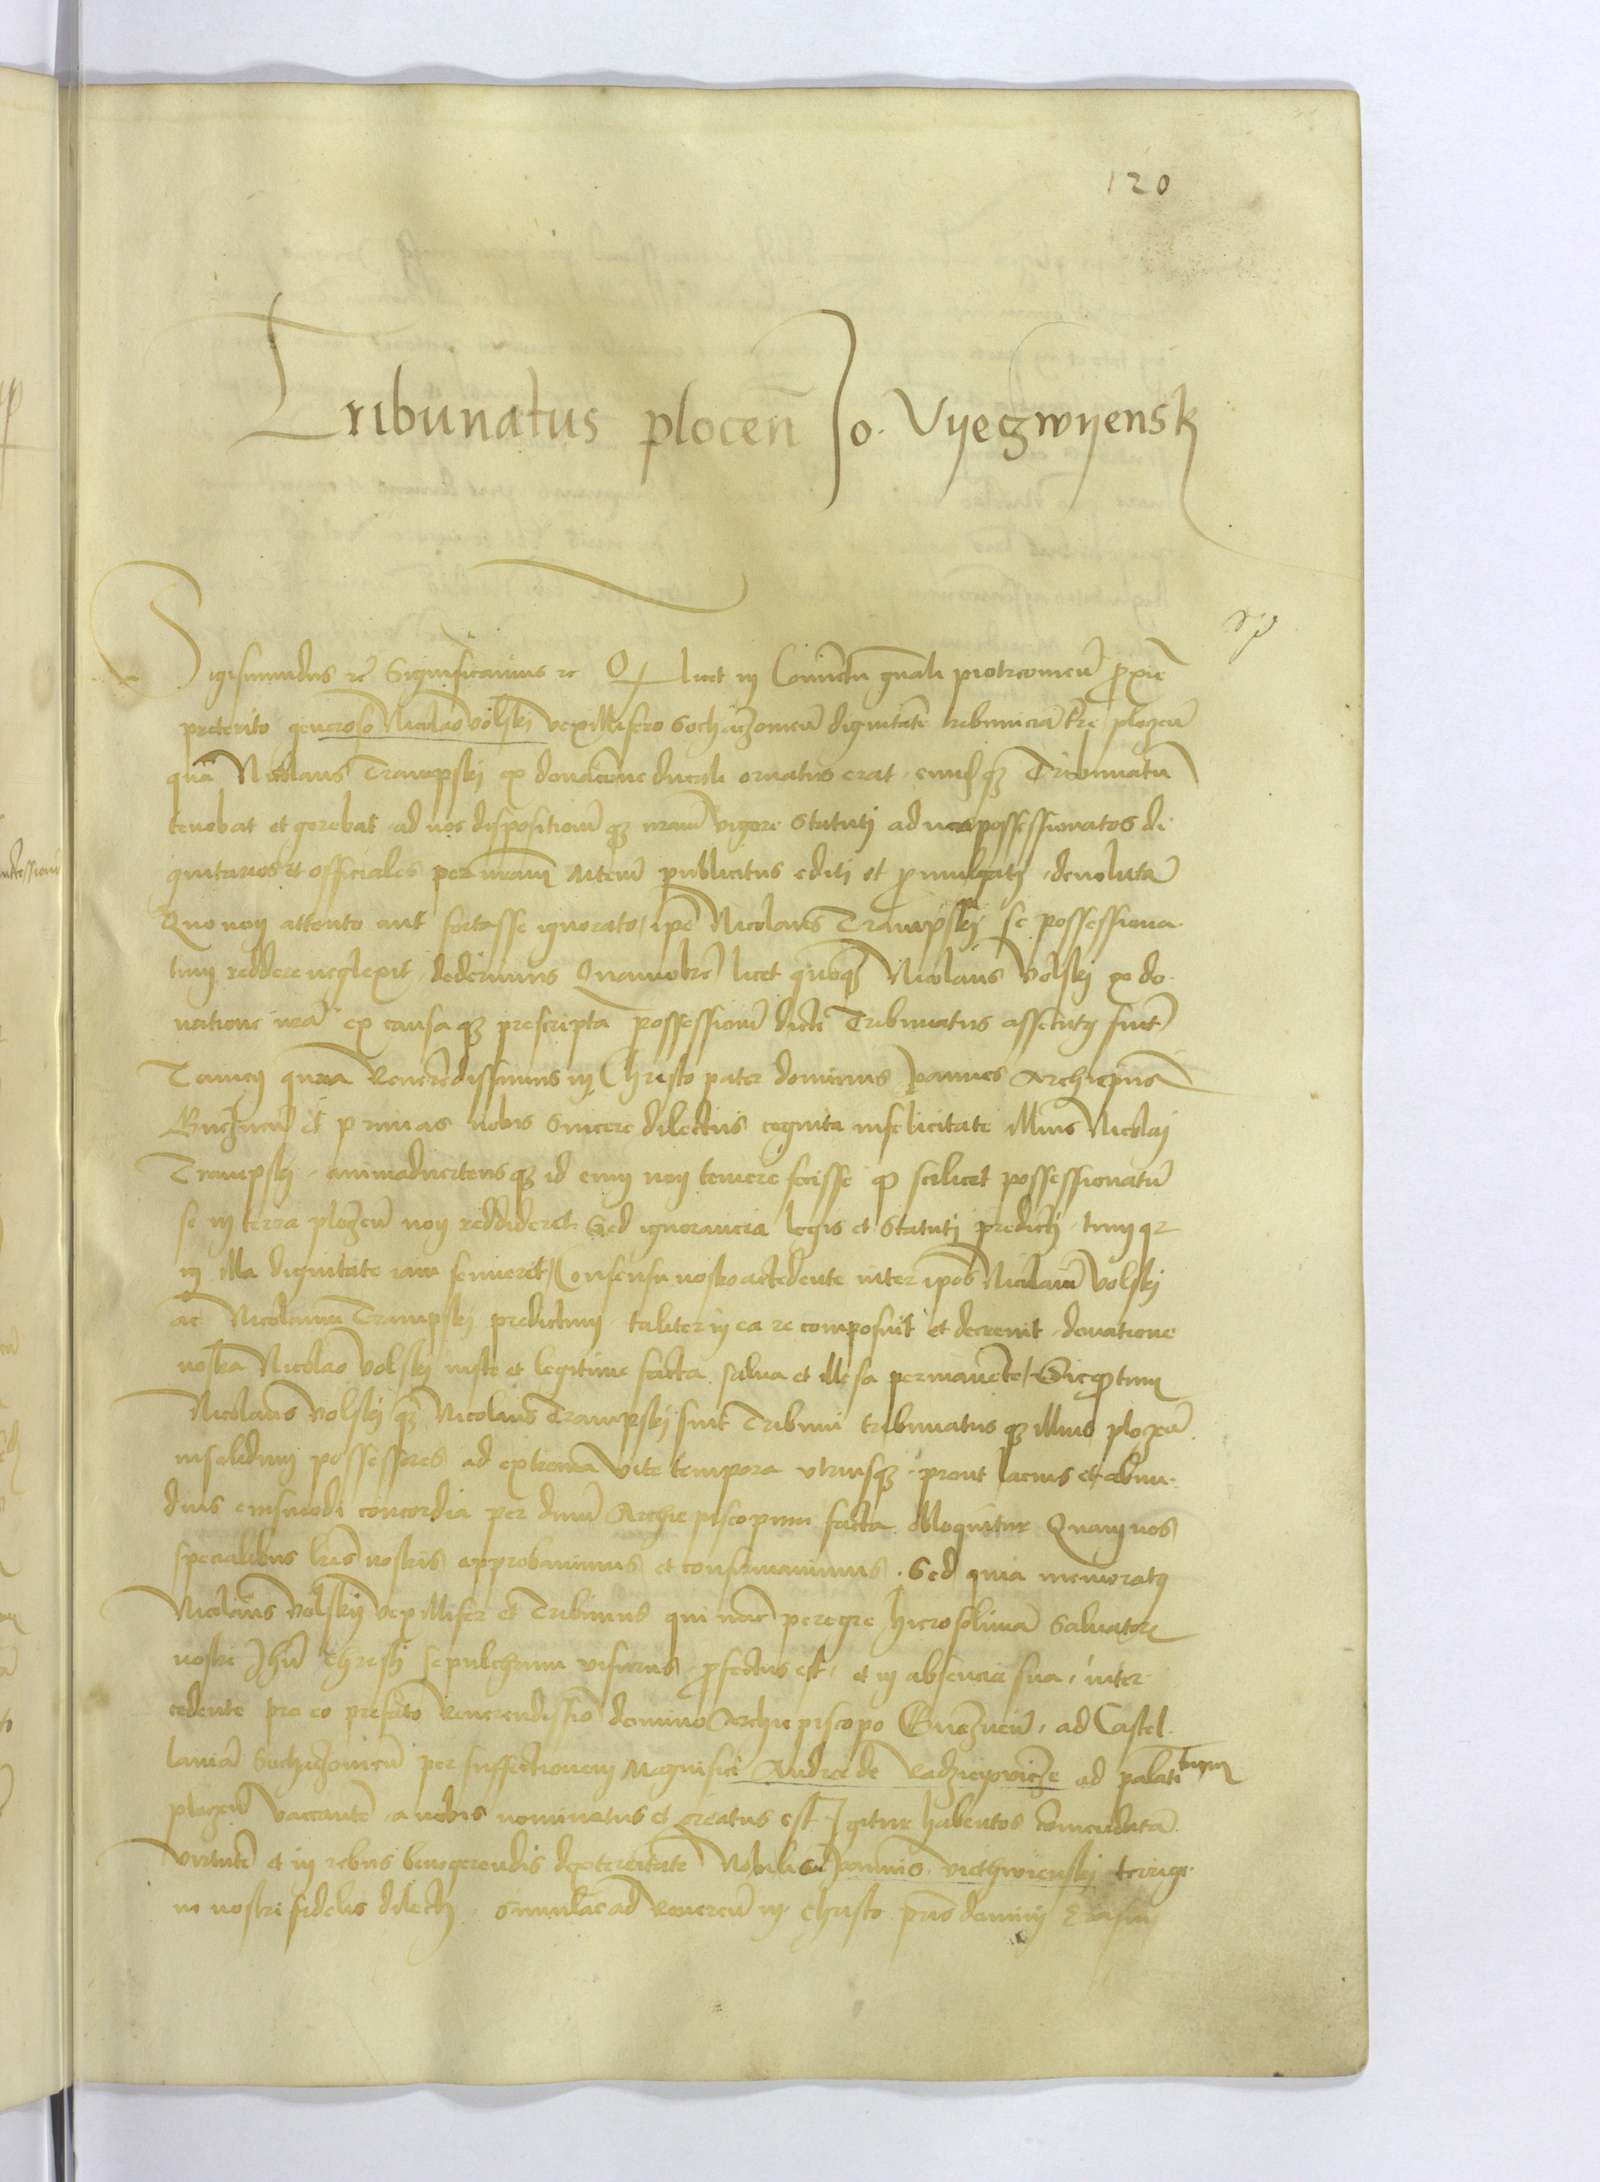 120
Tribunatus plocen̄ Jo. Vyeczwyensk
Sigismundus rc̄ Significamus rc Q licet in Conventu gn̄ali piotrcovien̄ proxīe
preterito generoso Nicolao Volski vexillifero Sochaczovien̄ dignitatē tribuniciā tr̄e plocen̄
quā Nicolaus Trampski ex donatione ducali ornatus erat, eiusqȝ Tribunatū
tenebat et gerebat ad nos dispositionē qȝ nrām vigore statuti ad possessionatos di
gnitarios et officiales per nrām Mtem̄ publicitus editi et promulgati, devolutā
Quo non attento aut fortasse ignorato, ipē Nicolaus Trampski se possessiona
tum reddere neglexit, dederimus Quamobrē licet quoqȝ Nicolaus Volski ex do
natione nrā ex causa qȝ prescripta possessionē dicti Tribunatus assecutus fuit
Tamen quia Reverēdissimus in Christo pater dominus Joannes Archiep̄us
Gneznen̄ et primas nobis sincere dilectus cognita infelicitate illius Nicolai
Trampski, animadvertens qȝ id eum non temere fecisse qđ scilicet possessionatū
se in terra plocen̄ non reddiderit Sed ignorancia legis et Statuti predicti, tum qr
in illa dignitate iam senuerit, Consensu nostro accedente inter ip̄os Nicolaum Volski
ac Nicolaum Trampski predictum, taliter in ea re composuit et decrevit, donatione
nostra Nicolao Volski iuste et legitime facta, salva et illesa permanēte,
Nicolaus Volski qȝ Nicolaus Trampski sint Tribuni tribunatus qȝ illius plocen̄
insolidum possessores ad extrema vite tempora utriusqȝ, prout lacius et abun
dius eiusmodi concordia per dnūm Archiepiscopum facta eloquitur Quam nos
specialibus lrīs nostris approbavimus et confirmavimus. Sed quia memoratus
Nicolaus Volskij Vexillifer et Tribunus qui nūc peregre hierosolimā Salvatoris
nostri Jhū Christi sepulchrum visurus, profectus est, et in absencia sua, inter
cedente pro eo prefato Reverendissīo domino Archiepiscopo Gneznen̄, ad Castel
laniā Sochaczovien̄ per suffectionem Magnifici Andree de Radzieyovicze ad palati
tum
plocen̄ vaccantē, a nobis nominatus et creatus est Igitur habentes comendatā
virtutē et in rebus benegerendis dexteritatē Nobilis Joannis Viethwienski terrige
ne nostri fidelis dilecti, simulac ad Reveren̄ in Christo pr̄is domini Erasmi